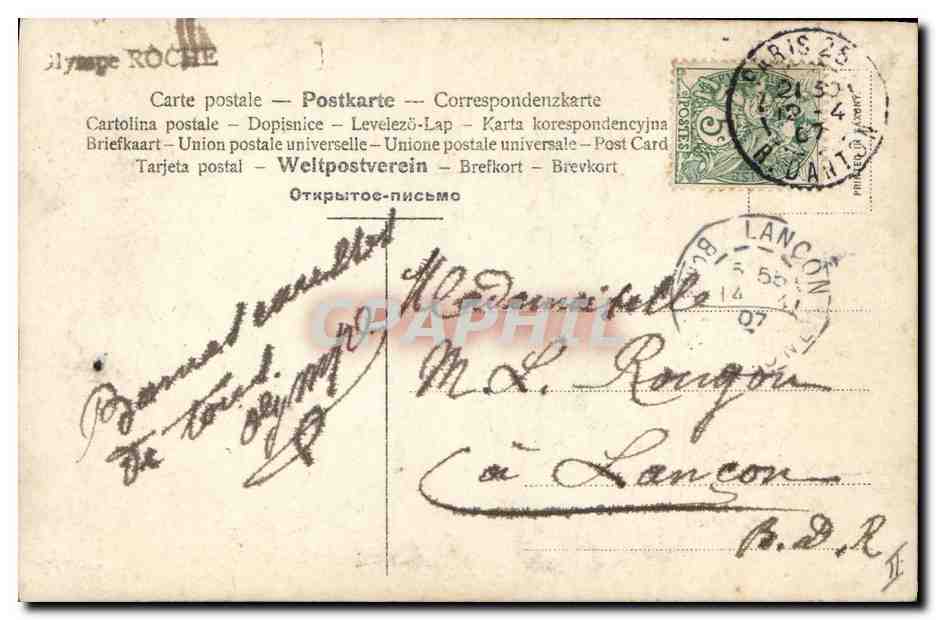 Olympe ROCHE
Carte postale — Postkarte — Correspondenzkarte
Cartolina postale – Dopisnice – Levelező-Lap – Karta korespondencyjna
Briefkaart – Union postale universelle – Unione postale universale – Post Card
Tarjeta postal – Weltpostverein – Brefkort – Brevkort
Открытое-письмо
5
POSTES
PARIS 25
R. DANTON
07
PRINTED IN SAXONY
LANCON
5 55
14
07
Bonne
De tous.
Olympe
Mademoiselle
M. L. Rougon
à Lançon
B. D. R
CPAPHIL